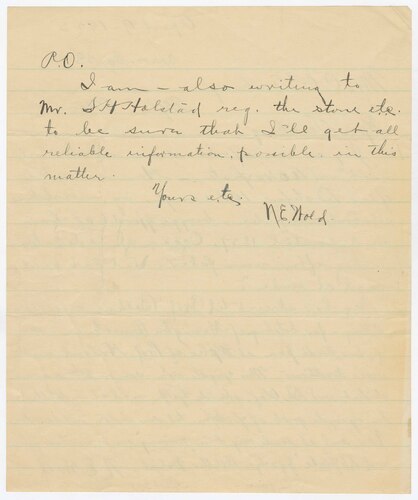 P.O.
I am - also writing to
Mr. S H Halstad reg. the store etc.
to be suver that I'll get all
reliable information, possible in this
matter.
Yours etc,
N E Hold